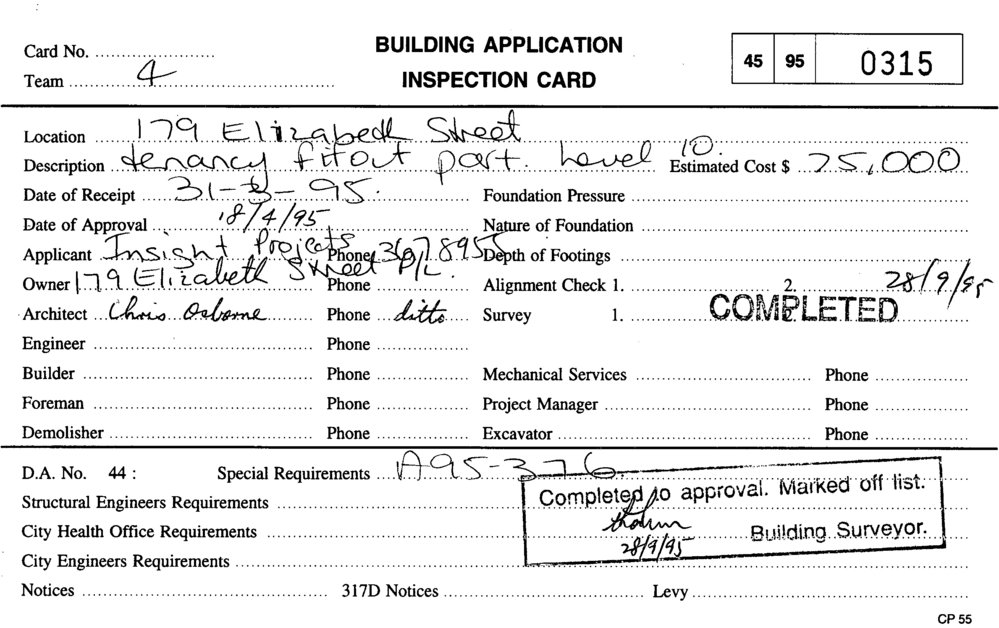 Card No.
BUILDING APPLICATION
INSPECTION CARD
45 95 0315
Team 4
Location 179 Elizabeth Street
Description tenancy fitout part. Level 10. Estimated Cost $ 75,000
Date of Receipt 31-3-95. Foundation Pressure
Date of Approval 18/4/95 Nature of Foundation
Applicant Insight Projects Phone 3678955 Depth of Footings
Owner 179 Elizabeth Street P/L. Phone Alignment Check 1. 2. 28/9/95
Architect Chris Osborne Phone ditto Survey 1. 2. COMPLETED
Engineer Phone
Builder Phone Mechanical Services Phone
Foreman Phone Project Manager Phone
Demolisher Phone Excavator Phone
D.A. No. 44 : Special Requirements A95-376
Structural Engineers Requirements
Completed to approval. Marked off list.
City Health Office Requirements
Building Surveyor.
28/9/95
City Engineers Requirements
Notices 317D Notices Levy
CP 55